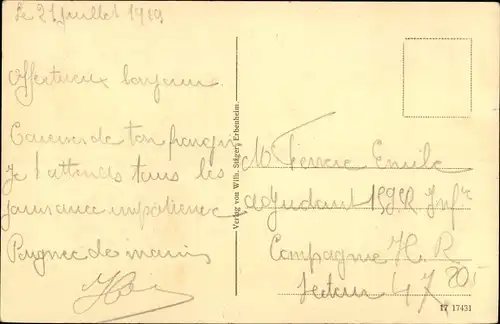 Le 21 Juillet 1919
Affectueux bonjour
Caresses de ton frangin
Je t'attends tous les
jours avec impatience
Poignée de mains
Verlag von Wilh. Stäger, Erbenheim.
Mr Pierre Emile
adjudant Infie
Compagnie H. R
Secteur 47
20.-
17 17431